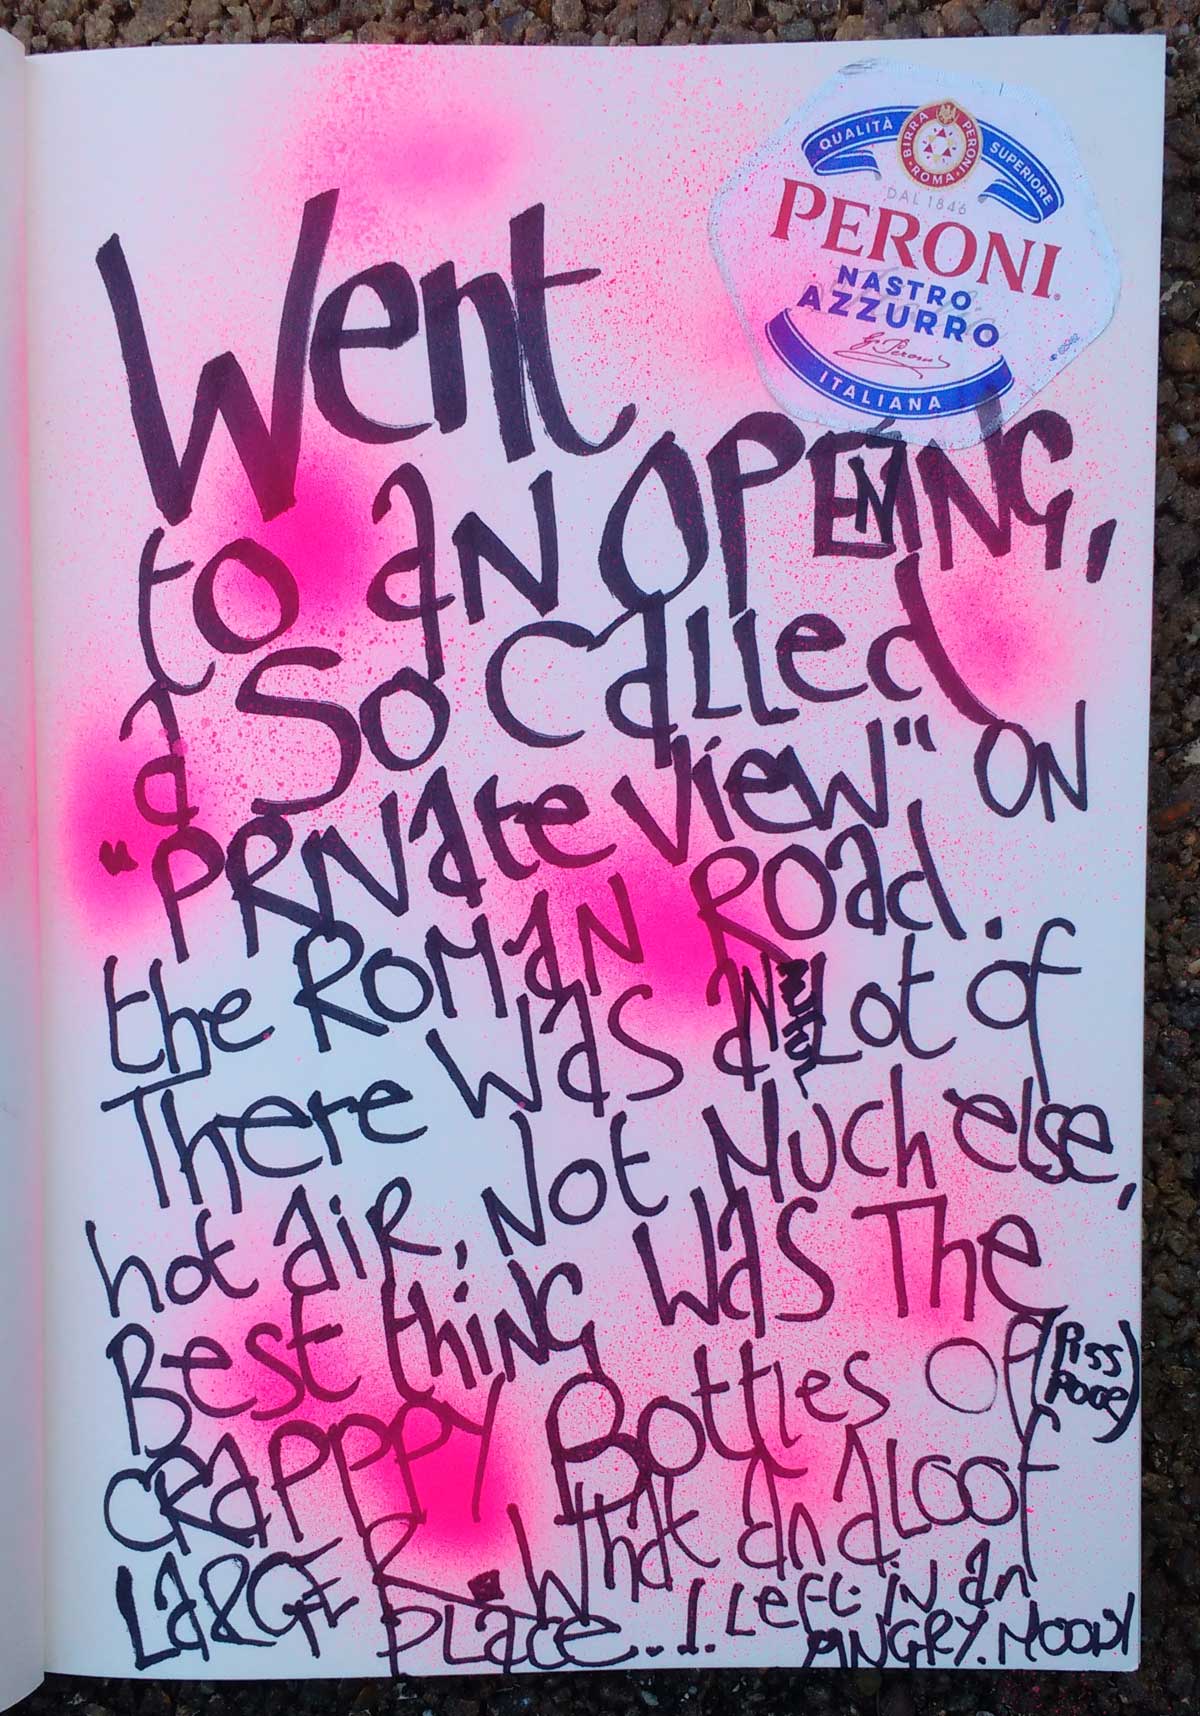 QUALITÀ SUPERIORE
BIRRA PERONI
ROMA
DAL 1846
PERONI
NASTRO
AZZURRO
G. Peroni
ITALIANA
Went
to an OPENING,
a So Called
"PRIVate View" ON
the ROMAN ROad.
There Was a Lot of
hot aiR, Not Much else,
Best thiNG Was The
CRAPPPY Bottles Of (Piss
LARGER. What an aLOOf
PLace... I. Left. iN an
ANGRY. MOODY